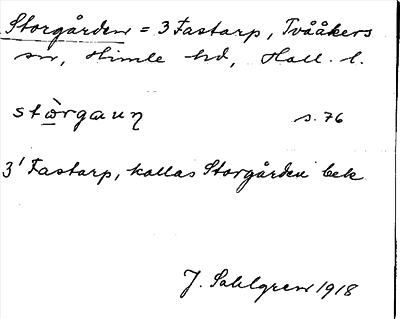 Storgården = 3 Fastarp, Tvååkers
sn, Himle hd, Hall. l.
stòrgaun s. 76
3' Fastarp, kallas Storgården bek
J. Sahlgren 1918